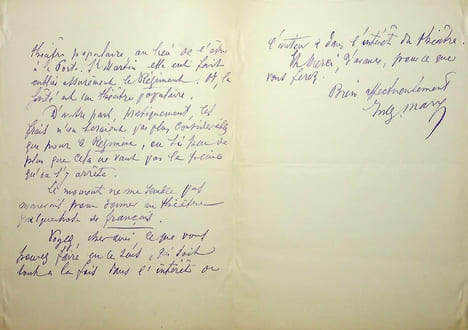 théâtre populaire au lieu de l'être
à la Porte St Martin elle eut fait
oublier assurément le Régiment. Et, la
Gaîté est un théâtre populaire.
D'autre part, pratiquement, les
frais n'en seraient pas plus considérables
que pour le Régiment, ou si peu de
plus que cela ne vaut pas la peine
qu'on s'y arrête.
Le moment ne me semble pas
mauvais pour donner au théâtre
quelque chose de français.
Voyez, cher ami, ce que vous
pouvez faire en ce sens, qui soit
tout à la fois dans l'intérêt de
l'auteur & dans l'intérêt du théâtre.
Et merci, d'avance, pour ce que
vous ferez.
Bien affectueusement
Mary